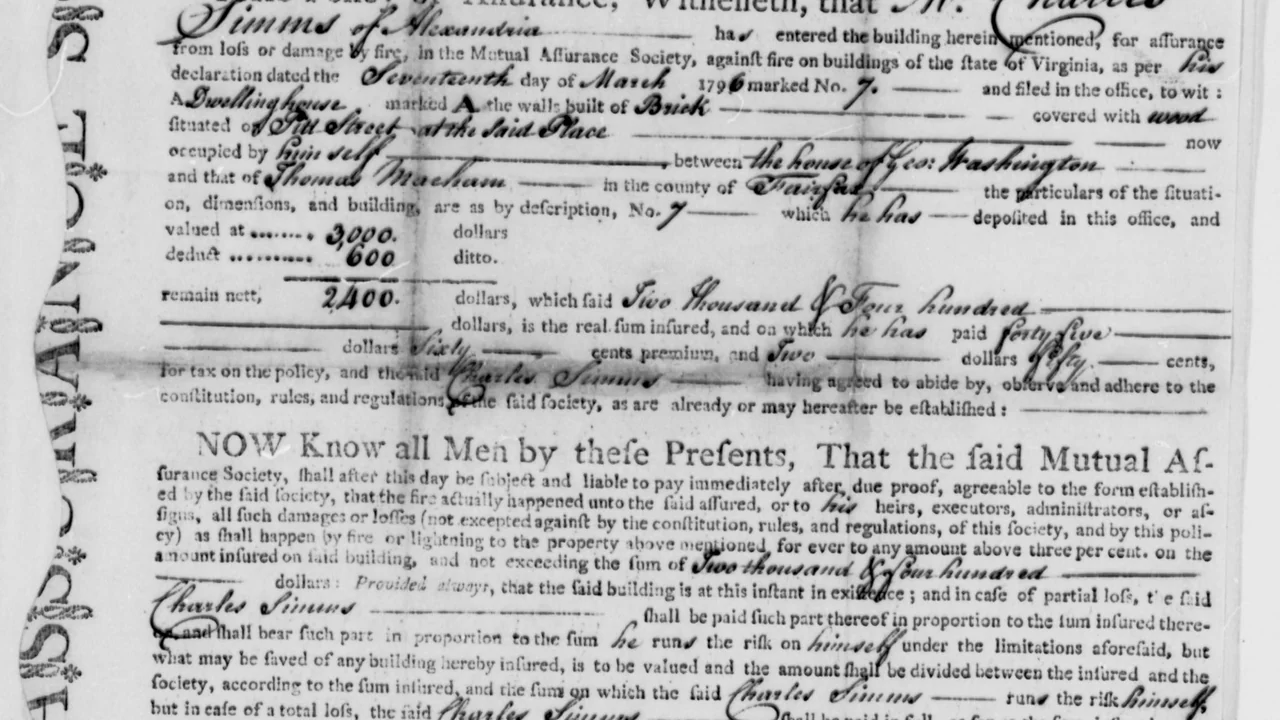 Assurance, Witnesseth, that Mr. Charles
Simms of Alexandria has entered the building herein mentioned, for aſſurance
from loſs or damage by fire, in the Mutual Aſſurance Society, againſt fire on buildings of the ſtate of Virginia, as per his
declaration dated the Seventeenth day of March 1796 marked No. 7. and filed in the office, to wit:
A Dwelling houſe marked A the walls built of Brick covered with wood
ſituated on Pitt Street at the said Place now
occupied by him self between the house of Geo: Washington
and that of Thomas in the county of Fairfax the particulars of the ſituati-
on, dimenſions, and building, are as by deſcription, No. 7 which he has depoſited in this office, and
valued at ........ 3,000. dollars
deduct .......... 600 ditto.
remain nett, 2,400. dollars, which ſaid Two thousand & Four hundred
dollars, is the real ſum inſured, and on which he has paid forty five
dollars Sixty cents premium, and Two dollars fifty cents,
for tax on the policy, and the ſaid Charles Simms having agreed to abide by, obſerve and adhere to the
conſtitution, rules, and regulations, of the ſaid ſociety, as are already or may hereafter be eſtabliſhed:
NOW Know all Men by theſe Preſents, That the ſaid Mutual Aſ-
ſurance Society, ſhall after this day be ſubject and liable to pay immediately after, due proof, agreeable to the form eſtabliſh-
ed by the ſaid ſociety, that the fire actually happened unto the ſaid aſſured, or to his heirs, executors, adminiſtrators, or aſ-
ſigns, all ſuch damages or loſſes (not excepted againſt by the conſtitution, rules, and regulations, of this ſociety, and by this poli-
cy) as ſhall happen by fire or lightning to the property above mentioned, for ever to any amount above three per cent. on the
amount inſured on ſaid building, and not exceeding the ſum of Two thousand & four hundred
dollars: Provided always, that the ſaid building is at this inſtant in exiſtence; and in caſe of partial loſs, the ſaid
Charles Simms ſhall be paid ſuch part thereof in proportion to the ſum inſured there-
on, and ſhall bear ſuch part in proportion to the ſum he runs the riſk on himself under the limitations aforeſaid, but
what may be ſaved of any building hereby inſured, is to be valued and the amount ſhall be divided between the inſured and the
ſociety, according to the ſum inſured, and the ſum on which the ſaid Charles Simms runs the riſk himself,
but in caſe of a total loſs, the ſaid Charles Simms ſhall be paid in full,